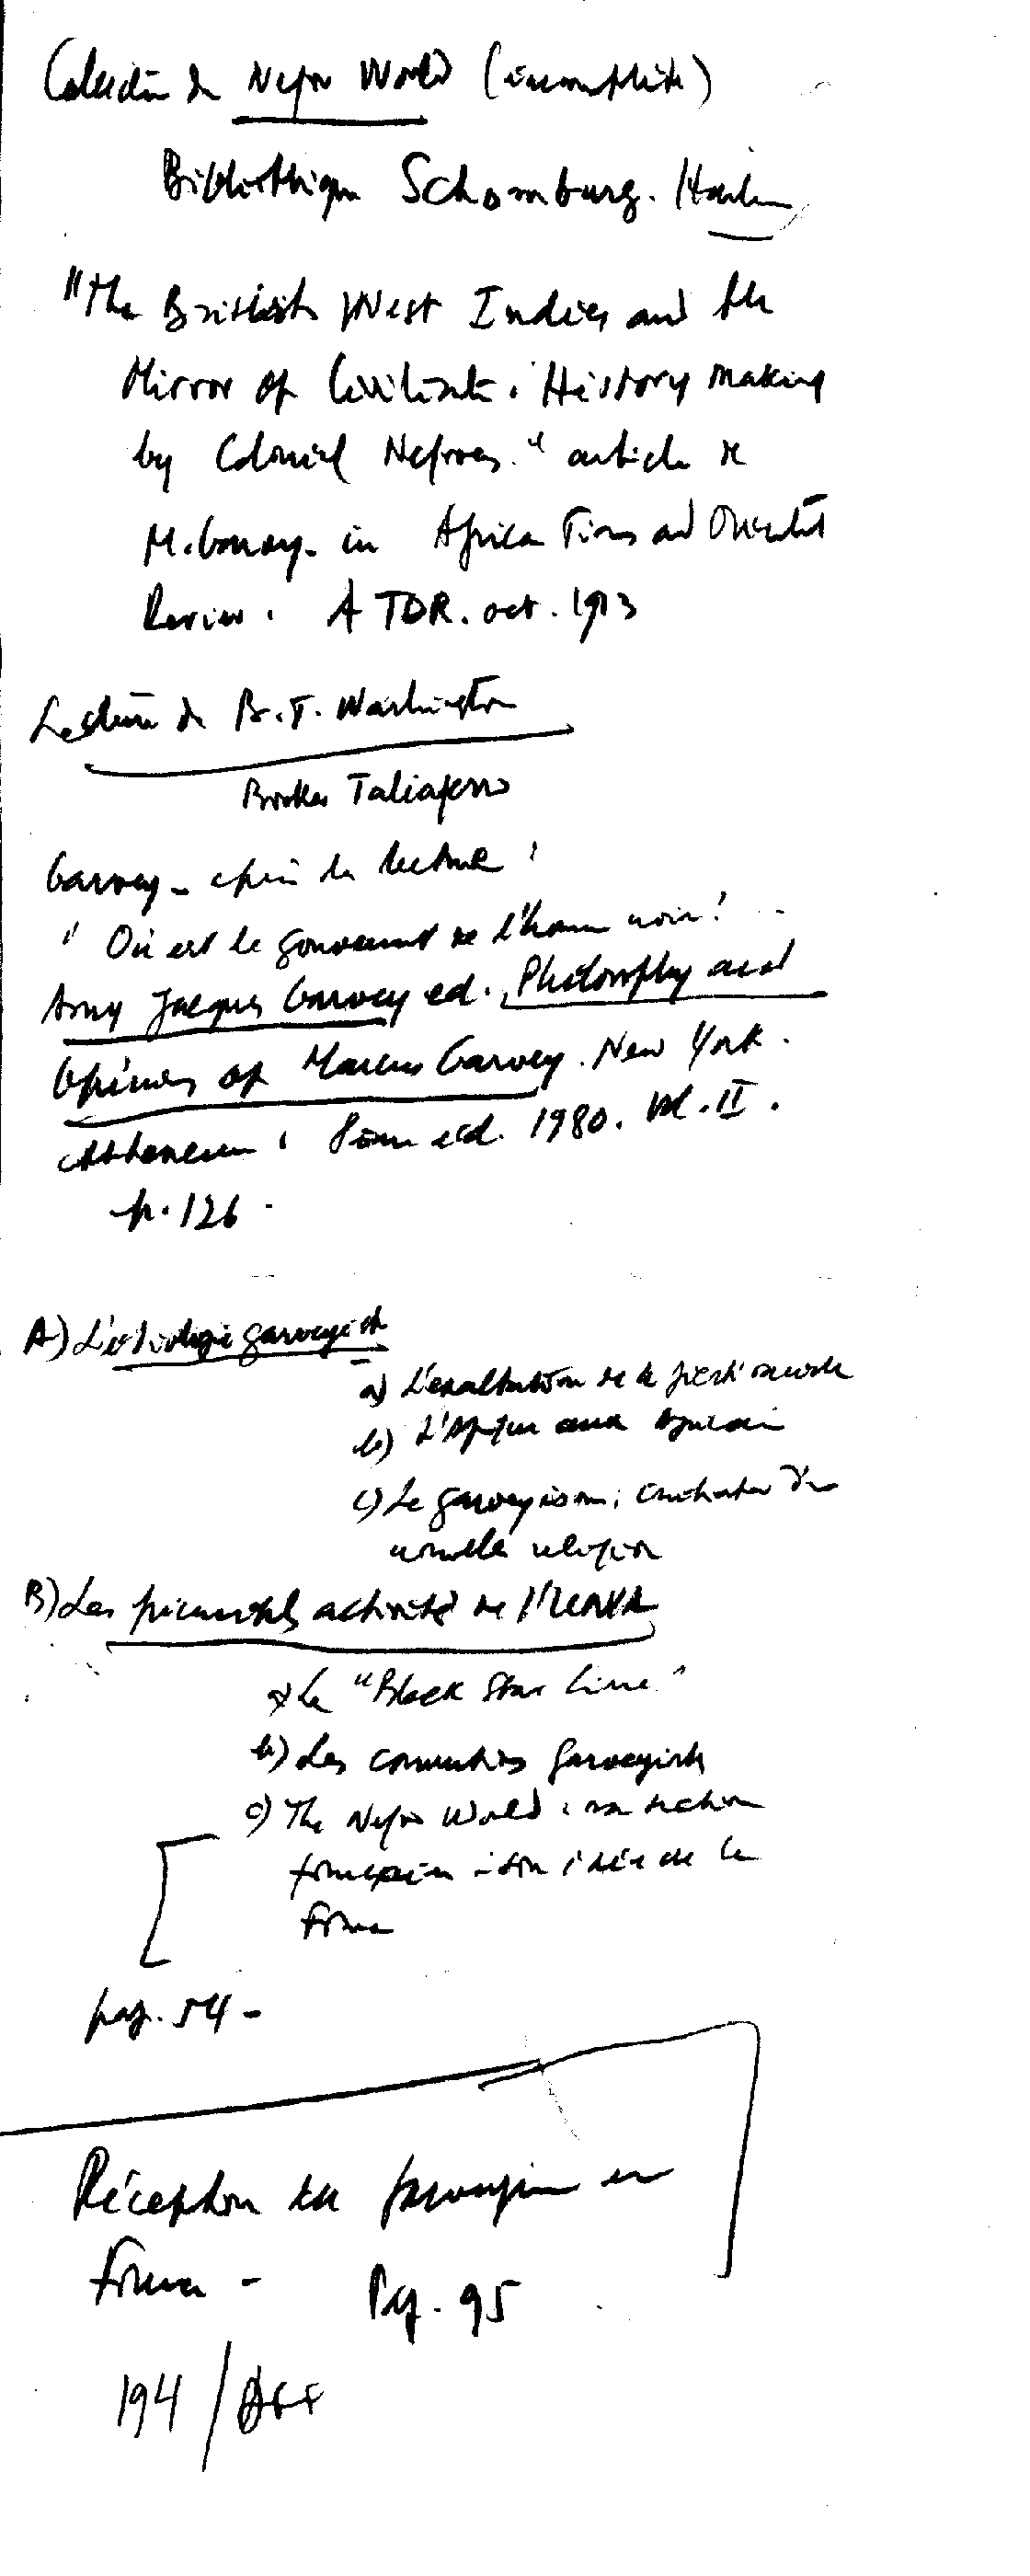 Collection de Negro World (incomplète)
Bibliothèque Schomburg. Harlem
"The British West Indies and the
Mirror of Civilisat. History making
by Colonial Negroes." article de
M. Garvey - in Africa Times and Oriental
Review. ATOR. oct. 1913
Lecture de B.T. Washington
Booker Taliaferro
Garvey - après la lecture :
" Où est le gouvernement de l'homme noir?
Amy Jacques Garvey ed. Philosophy and
Opinions of Marcus Garvey. New York.
Atheneum, ed. 1980. Vol. II.
p. 126 -
A) L'idéologie garveyiste
a) L'exaltation de la fierté raciale
b) L'Afrique aux Africains
c) Le garveyisme,
nouvelle religion
B) Les principales activités de l'UNIA
a) La "Black Star Line"
b) Les conventions garveyistes
c) The Negro World, sa section
française idée de la
France
pag. 54 -
Réception du garveyisme en
France - Pag. 95
194 /